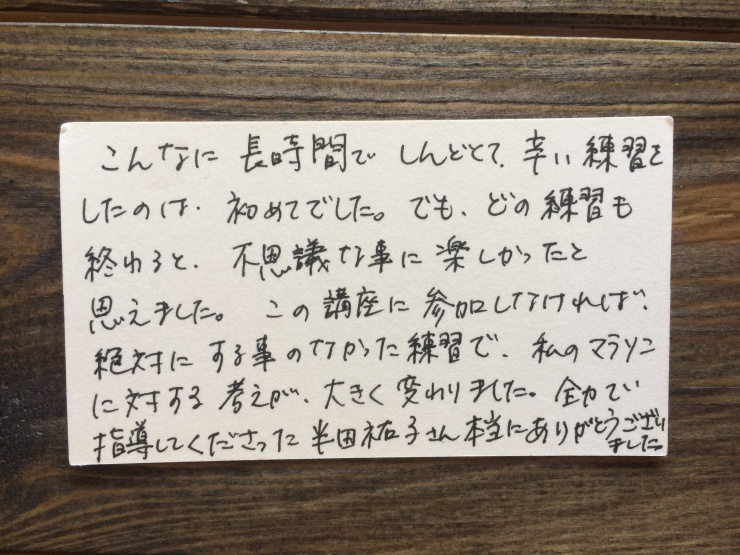 こんなに 長時間で しんどくて、辛い 練習を
したのは、初めてでした。でも、どの練習も
終わると、不思議な事に楽しかったと
思えました。この講座に参加しなければ、
絶対にする事のなかった練習で、私のマラソン
に対する考えが、大きく変わりました。全力で
指導してくださった半田祐子さん本当にありがとうござい
ました。